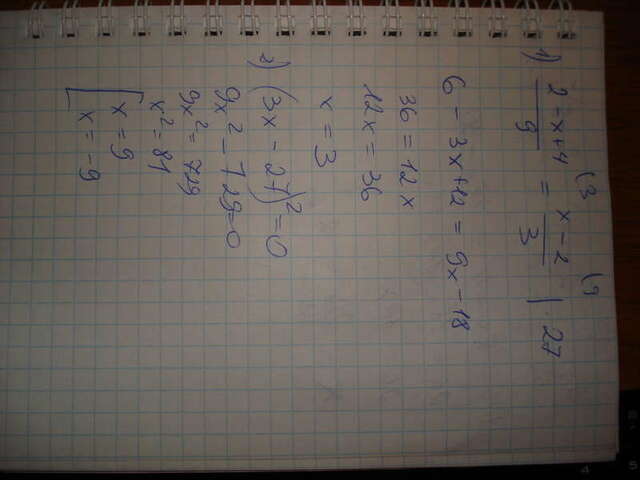 1) (2 - x + 4)/9 (3 = (x - 2)/3 (9 | 27
6 - 3x + 12 = 9x - 18
36 = 12x
12x = 36
x = 3
2) (3x - 27)² = 0
9x² - 729 = 0
9x² = 729
x² = 81
[ x = 9
x = -9